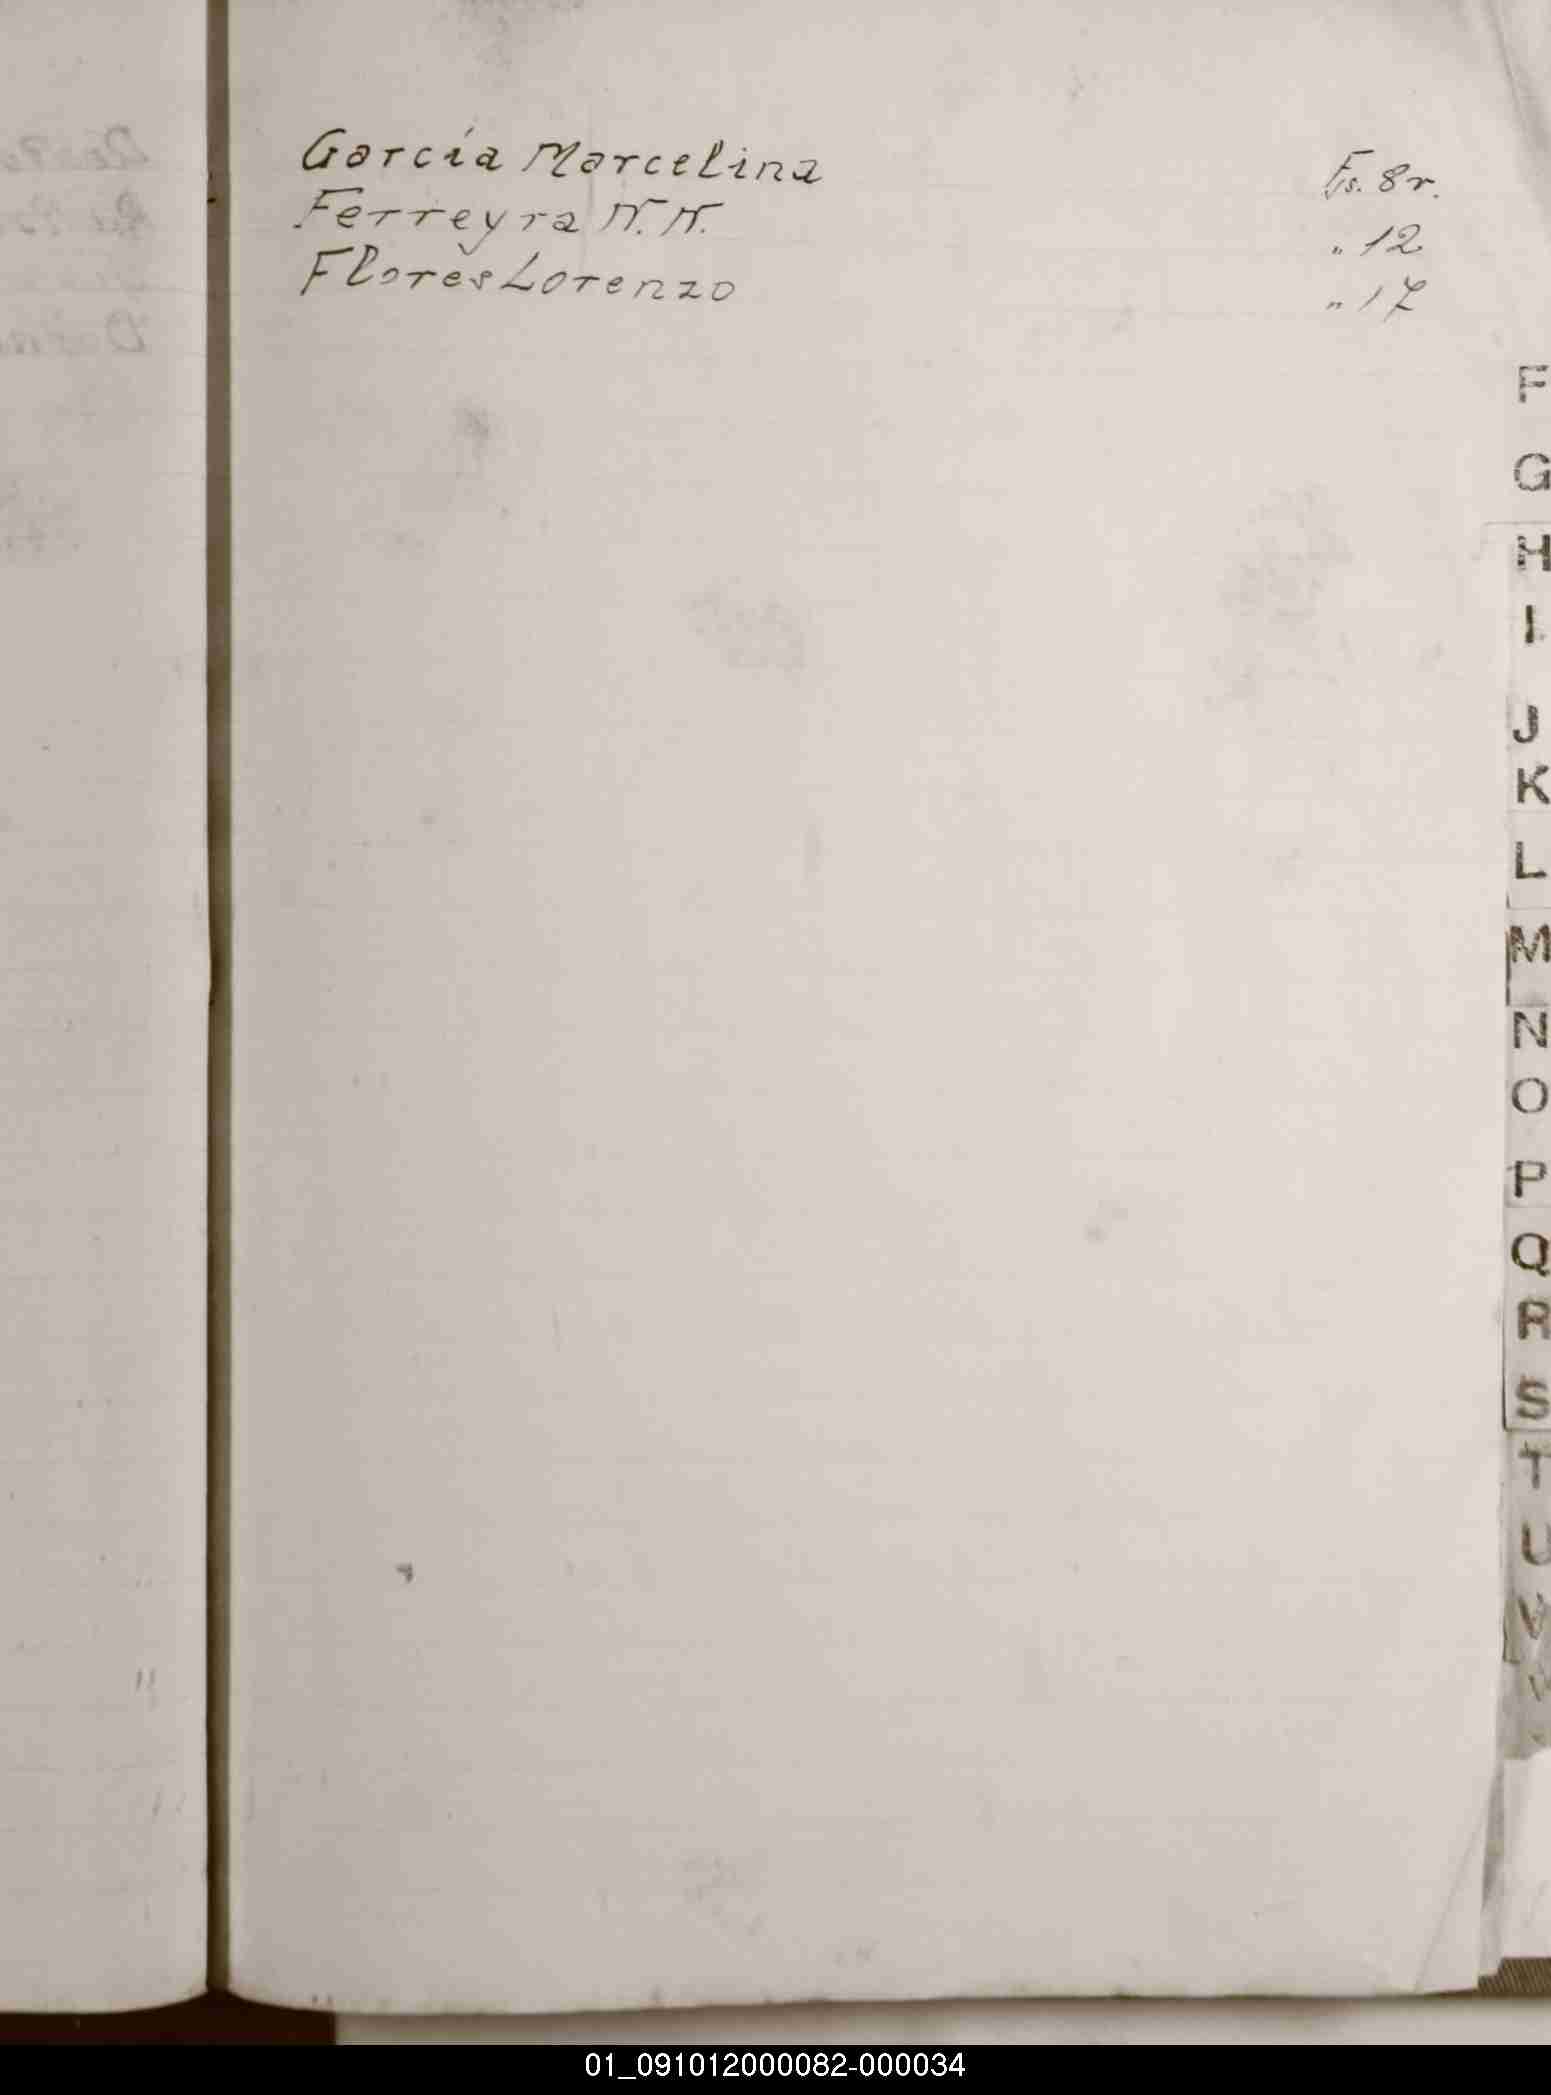 García Marcelina Fs. 8 r.
Ferreyra N. N. " 12
Flores Lorenzo " 17
F
G
H
I
J
K
L
M
N
O
P
Q
R
S
T
U
V
01_091012000082-000034